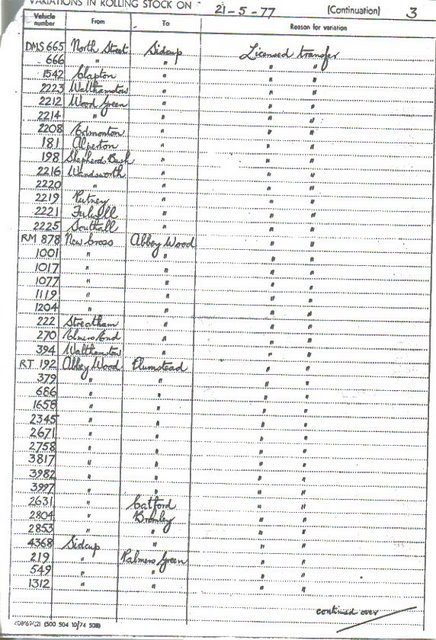 VARIATIONS IN ROLLING STOCK ON 21-5-77 (Continuation) 3
Vehicle number From To Reason for variation
DMS 665 North Street Sidcup Licensed transfer
666 " " " "
1542 Clapton " " "
2223 Walthamstow " " "
2212 Wood Green " " "
2214 " " " "
2208 Edmonton " " "
181 Alperton " " "
198 Shepherds Bush " " "
2216 Wandsworth " " "
2220 " " " "
2219 Putney " " "
2221 Fulwell " " "
2225 Southall " " "
RM 878 New Cross Abbey Wood " "
1001 " " " "
1017 " " " "
1077 " " " "
1119 " " " "
1204 " " " "
222 Streatham " " "
270 Elmers End " " "
394 Walthamstow " " "
RT 192 Abbey Wood Plumstead " "
379 " " " "
686 " " " "
1658 " " " "
2345 " " " "
2671 " " " "
2758 " " " "
3817 " " " "
3982 " " " "
3997 " " " "
2631 " Catford " "
2804 " Bromley " "
2853 " " " "
4368 Sidcup " " "
219 " Palmers Green " "
549 " " " "
1312 " " " "
continued over